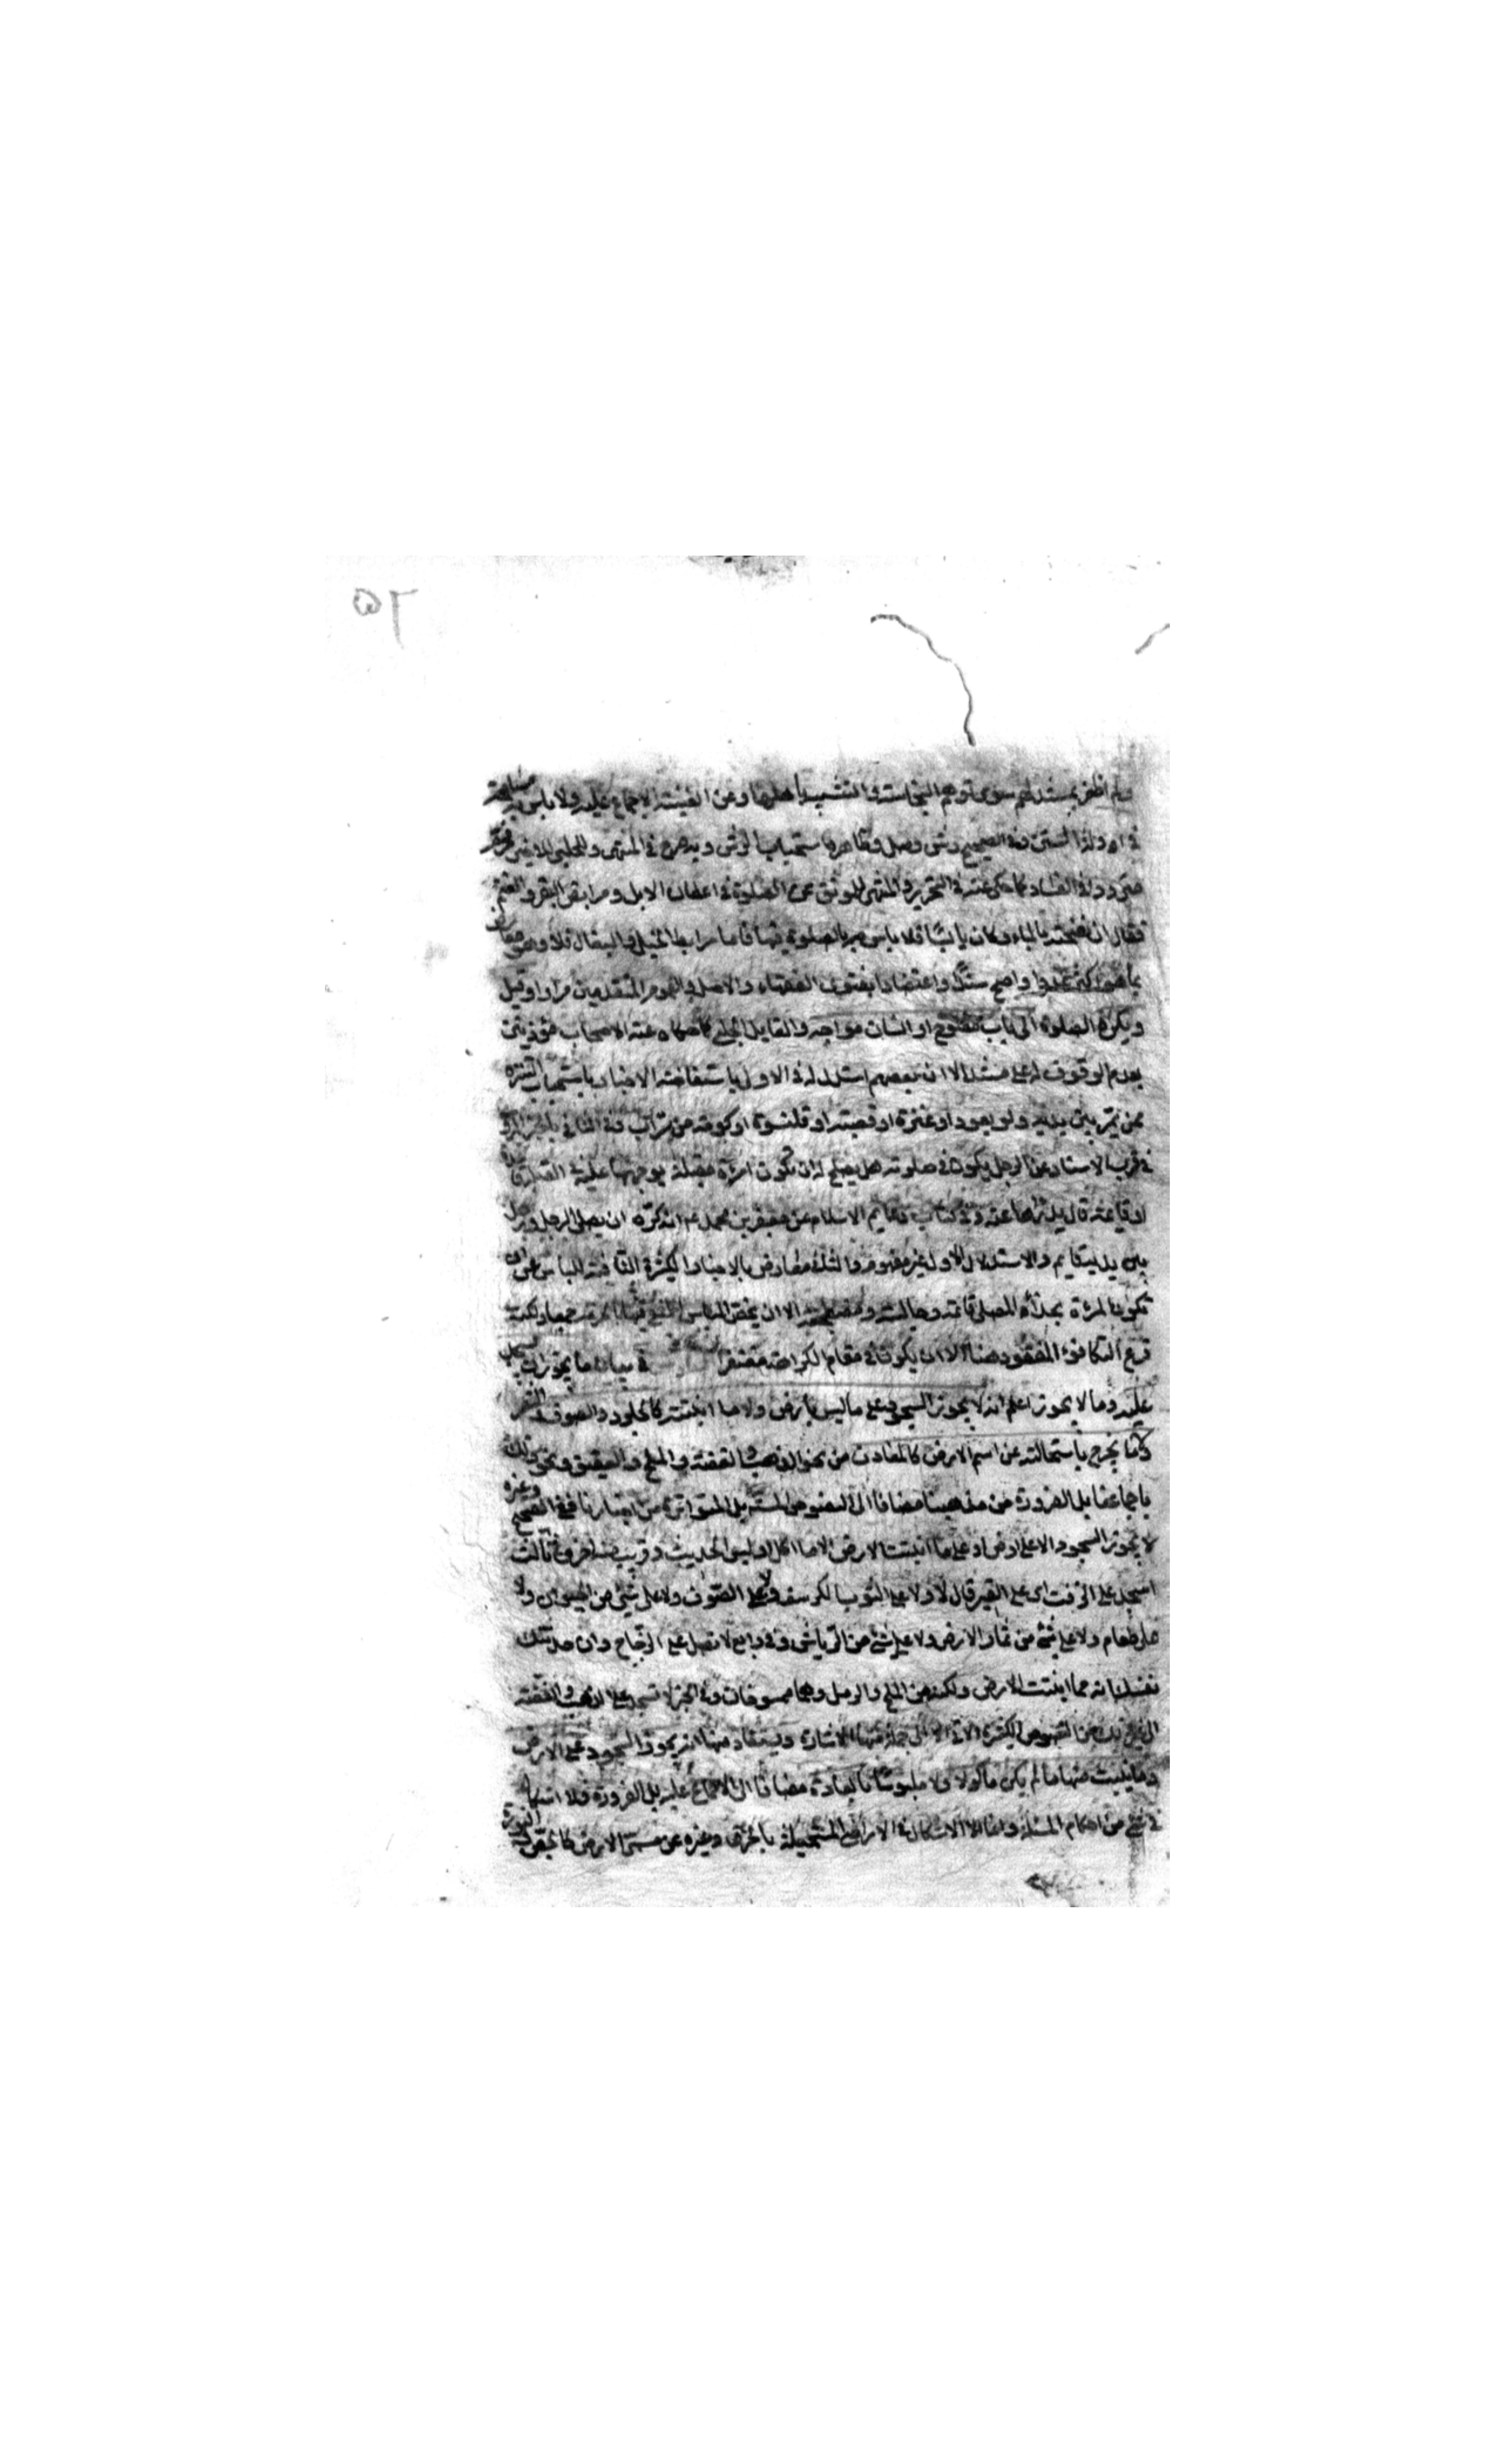 ٥٢
ولم اظفر بمستند لهم سوى توهم النجاسة والتشبيه باهلها وعن الغنية الاجماع عليه ولا باس به
فقال ان نضحته بالماء وكان يابسا فلا باس بالصلوة فيها فاما مرابط الخيل والبغال فلا وهو معارض
بما هو اكثر عددا واصح سندا واعتضادا بفتوى الفقهاء والاصل والعموم المتقدمين مرارا وقيل
ويكره الصلوة الى باب مفتوح او انسان مواجه والقايل الحلبي كما حكاه عنه الاصحاب مؤذنين
بعدم الوقوف له على مستند الا ان بعضهم استدل له في الاول باستفاضة الاخبار باستحباب السترة
ممن يمر بين يديه ولو بعود او عنزة او قصبة او قلنسوة او كومة من تراب وفي الثاني بالخبر المروي
في قرب الاسناد عن الرجل يكون في صلوته هل يصلح له ان تكون امرأة مقبلة بوجهها عليه في القبلة قاعدة
او قائمة قال يدرأها عنه وفي كتاب دعايم الاسلام عن جعفر بن محمد عم انه كره ان يصلي الرجل ورجل
بين يديه قايم والاستدلال الاول غير مفهوم والثاني معارض بالاخبار الكثيرة النافية للباس عن ان
تكون المرأة بحذاء المصلي قائمة وجالسة ومضطجعة الا ان يخص الباس المنفي فيها بالحرمة جمعا ولكنه
فرع التكافؤ المفقود هنا الا ان يكون في مقام الكراهة مغتفرا في بيان ما يجوز ان يسجد
عليه وما لا يجوز اعلم انه لا يجوز السجود على ما ليس بارض ولا ما انبتته كالجلود والصوف والشعر
وكلما يخرج باستحالته عن اسم الارض كالمعادن من نحو الذهب والفضة والملح والعقيق ونحو ذلك
باجماعنا بل الضرورة من مذهبنا مضافا الى النصوص المستفيضة بل المتواترة من اخبارنا ففي الصحيح وغيره
لا يجوز السجود الا على الارض او على ما انبتت الارض الا ما اكل او لبس الحديث وقريب منه اخر وفي ثالث
اسجد على الزفت اي على القير قال لا ولا على الثوب الكرسف ولا على الصوف ولا على شيء من الحيوان ولا
على طعام ولا على شيء من ثمار الارض ولا على شيء من الرياش وفي رابع لا تصل على الزجاج وان حدثتك
نفسك انه مما انبتت الارض ولكنه من الملح والرمل وهما ممسوخان وفي الخبر لا تسجد على الذهب والفضة
الى غير ذلك من النصوص الكثيرة الاتي الى جملة منها الاشارة ويستفاد منها انه يجوز السجود على الارض
وما ينبت منها ما لم يكن ماكولا ولا ملبوسا بالعادة مضافا الى الاجماع عليه بل الضرورة فلا اشكال
في شيء من احكام المسئلة وانما الاشكال في الاراضي المستحيلة بالحرق وغيره عن مسمى الارض كالجص والنورة